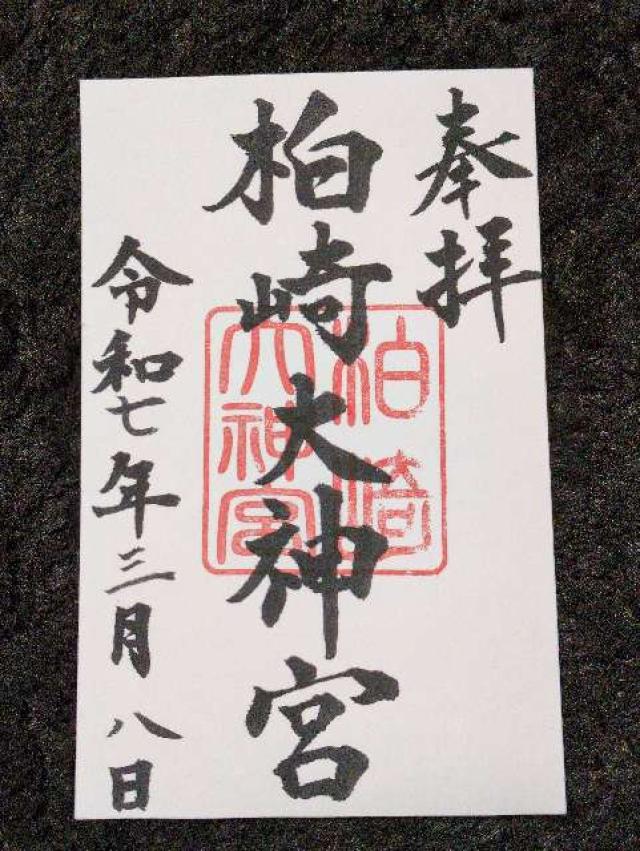 奉拝
柏崎大神宮
柏崎
大神宮
令和七年三月八日